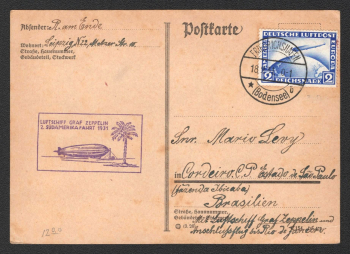 Absender: R. am Ende
Wohnort: Leipzig N22, Metzer Str. 11
Straße, Hausnummer,
Gebäudeteil, Stockwerk
Postkarte
DEUTSCHE LUFTPOST
2 REICHSMARK 2
FRIEDRICHSHAFEN
18.
(Bodensee)
LUFTSCHIFF GRAF ZEPPELIN
2. SÜDAMERIKAFAHRT 1931
Snr. Mario Levy
in Cordeiro, C.P. Estado de São-Paulo
(fazenda Ibicaba)
Brasilien
Straße, Hausnummer,
Luftschiff Graf Zeppelin und
Anschlußflug bis Rio de Janeiro.